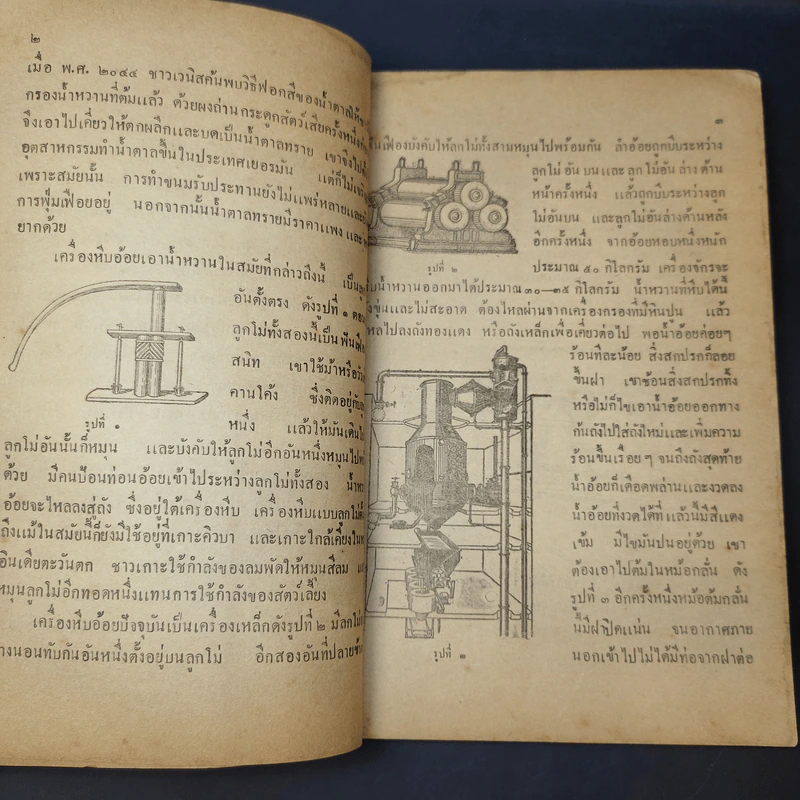 ๒
เมื่อ พ.ศ. ๒๐๔๔ ชาวเวนิสค้นพบวิธีฟอกสีของน้ำตาลให้
กรองน้ำหวานที่ต้มแล้ว ด้วยผงถ่านกระดูกสัตว์เสียครั้งหนึ่ง
จึงเอาไปเคี่ยวให้ตกผลึกและบดเป็นน้ำตาลทราย เขาจึง
อุตสาหกรรมทำน้ำตาลขึ้นในประเทศเยอรมัน แต่ก็ไม่
เพราะสมัยนั้น การทำขนมรับประทานยังไม่แพร่หลายและ
การฟุ่มเฟือยอยู่ นอกจากนั้นน้ำตาลทรายมีราคาแพง และ
ยากด้วย
เครื่องหีบอ้อยเอาน้ำหวานในสมัยที่กล่าวถึงนี้ เป็น
อันตั้งตรง ดังรูปที่ ๑
ลูกโม่ทั้งสองนี้เป็น
สนิท เขาใช้ม้าหรือ
คานโค้ง ซึ่งติดอยู่กับ
รูปที่ ๑
หนึ่ง แล้วให้มันเดิน
ลูกโม่อันนั้นก็หมุน และบังคับให้ลูกโม่อีกอันหนึ่งหมุนไป
ด้วย มีคนป้อนท่อนอ้อยเข้าไประหว่างลูกโม่ทั้งสอง
อ้อยจะไหลลงสู่ถัง ซึ่งอยู่ใต้เครื่องหีบ เครื่องหีบแบบลูกโม่
ถึงแม้ในสมัยนี้ก็ยังมีใช้อยู่ที่เกาะคิวบา และเกาะใกล้เคียงใน
อินเดียตะวันตก ชาวเกาะใช้กำลังของลมพัดให้หมุนสีลม
หมุนลูกโม่อีกทอดหนึ่งแทนการใช้กำลังของสัตว์เลี้ยง
เครื่องหีบอ้อยปัจจุบันเป็นเครื่องเหล็กดังรูปที่ ๒ มีลูกโม่
างนอนทับกันอันหนึ่งตั้งอยู่บนลูกโม่ อีกสองอันที่ปลายข้าง
๓
เฟืองบังคับให้ลูกโม่ทั้งสามหมุนไปพร้อมกัน ลำอ้อยถูกบีบระหว่าง
ลูกโม่อันบนและลูกโม่อันล่างด้าน
หน้าครั้งหนึ่ง แล้วถูกบีบระหว่างลูก
โม่อันบน และลูกโม่อันล่างด้านหลัง
อีกครั้งหนึ่ง จากอ้อยหอบหนึ่งหนัก
รูปที่ ๒
ประมาณ ๕๐ กิโลกรัม เครื่องจักรจะ
น้ำหวานออกมาได้ประมาณ ๓๐—๓๕ กิโลกรัม น้ำหวานที่หีบได้นี้
ขุ่นและไม่สะอาด ต้องไหลผ่านจากเครื่องกรองที่มีหินปูน แล้ว
ไหลไปลงถังทองแดง หรือถังเหล็กเพื่อเคี่ยวต่อไป พอน้ำอ้อยค่อยๆ
ร้อนทีละน้อย สิ่งสกปรกก็ลอย
ขึ้นฝา เขาช้อนสิ่งสกปรกทิ้ง
หรือไม่ก็ไขเอาน้ำอ้อยออกทาง
ก้นถังไปใส่ถังใหม่และเพิ่มความ
ร้อนขึ้นเรื่อยๆ จนถึงถังสุดท้าย
น้ำอ้อยก็เดือดพล่านและงวดลง
น้ำอ้อยที่งวดได้ที่แล้วนี้มีสีแดง
เข้ม มีไขมันปนอยู่ด้วย เขา
ต้องเอาไปต้มในหม้อกลั่น ดัง
รูปที่ ๓ อีกครั้งหนึ่งหม้อต้มกลั่น
นี้มีฝาปิดแน่น จนอากาศภาย
รูปที่ ๓
นอกเข้าไปไม่ได้มีท่อจากฝาต่อ